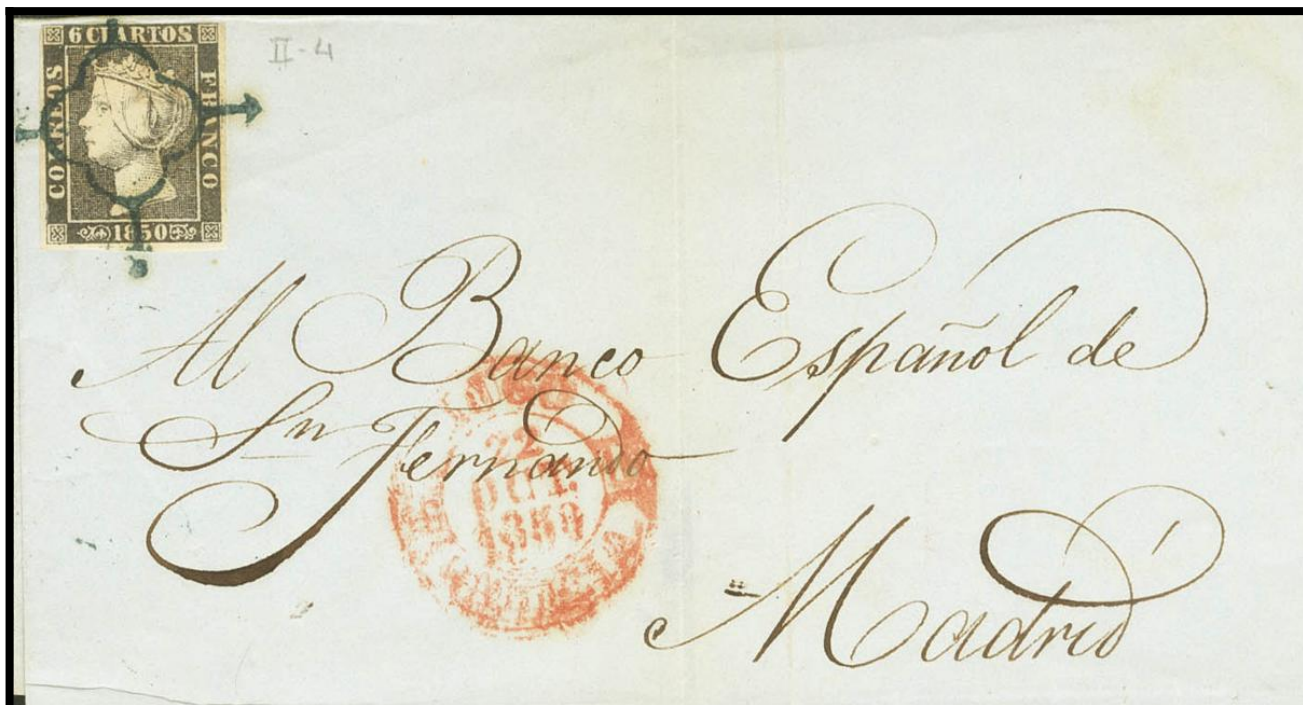 6 CUARTOS
CORREOS
FRANCO
1850
II-4
Al Banco Español de
Sn Fernando
Madrid
22
OCT.